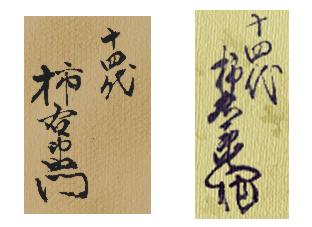 十四代
柿右衛門
十四代
柿右衛門